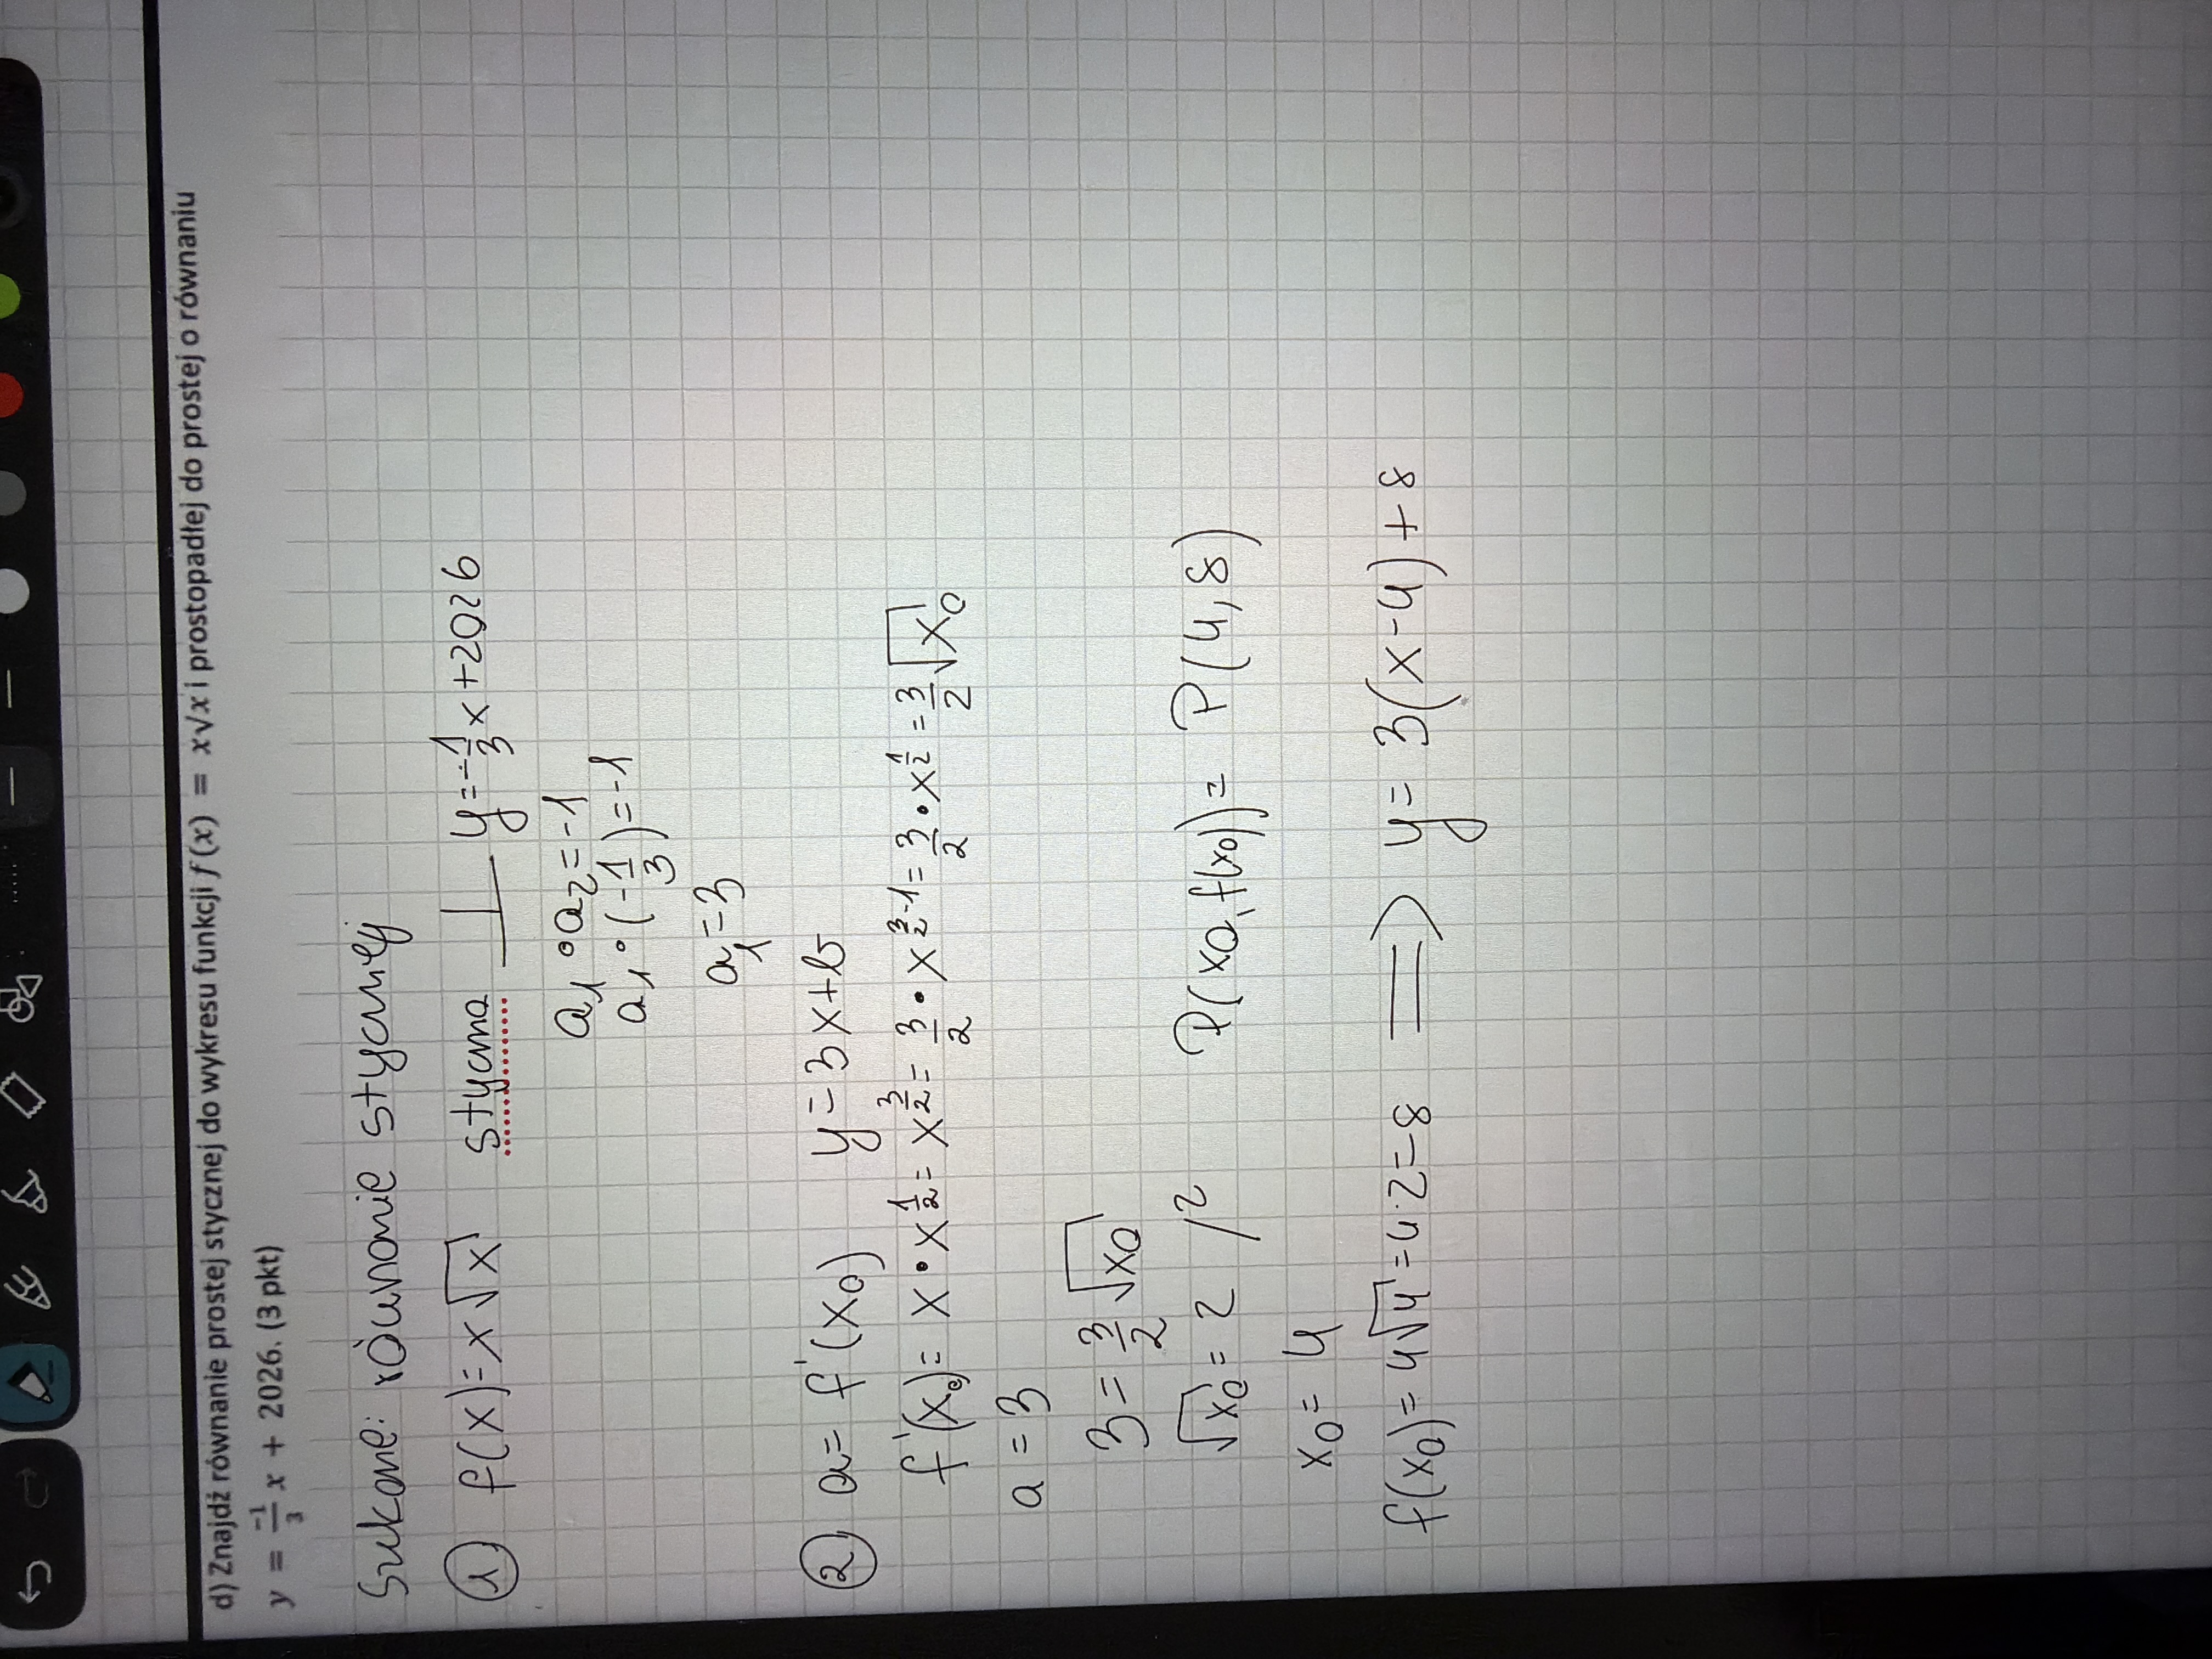 d) Znajdź równanie prostej stycznej do wykresu funkcji f(x) = x√x i prostopadłej do prostej o równaniu
y = -1/3 x + 2026. (3 pkt)
Sukane: równanie stycznej
1) f(x)=x√x styczna ⊥ y=-1/3x+2026
a₁•a₂=-1
a₁•(-1/3)=-1
a₁=3
2) a=f'(x₀) y=3x+b
f'(x₀)=x•x^1/2=x^3/2=3/2•x^3/2-1=3/2•x^1/2=3/2√x₀
a=3
3=3/2√x₀
√x₀=2 /²
P(x₀,f(x₀))= P(4,8)
x₀=4
f(x₀)=4√4=4·2=8 ⇒ y=3(x-4)+8